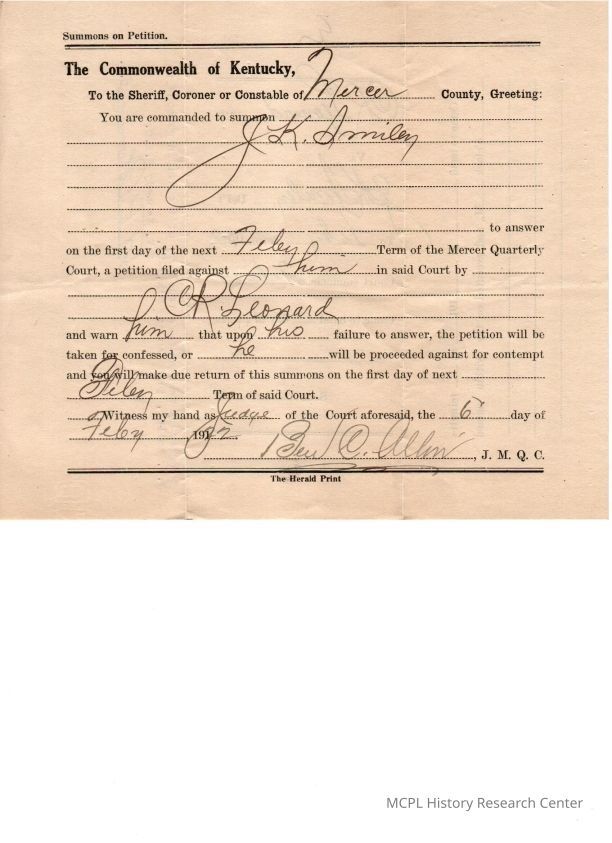 Summons on Petition.
The Commonwealth of Kentucky,
To the Sheriff, Coroner or Constable of Mercer County, Greeting:
You are commanded to summon
J. K. Smiley
to answer
on the first day of the next Feby Term of the Mercer Quarterly
Court, a petition filed against him in said Court by
C R Leonard
and warn him that upon his failure to answer, the petition will be
taken for confessed, or he will be proceeded against for contempt
and you will make due return of this summons on the first day of next
Feby Term of said Court.
Witness my hand as Judge of the Court aforesaid, the 6 day of
Feby, 191
Ben C. Allin, J. M. Q. C.
The Herald Print
MCPL History Research Center